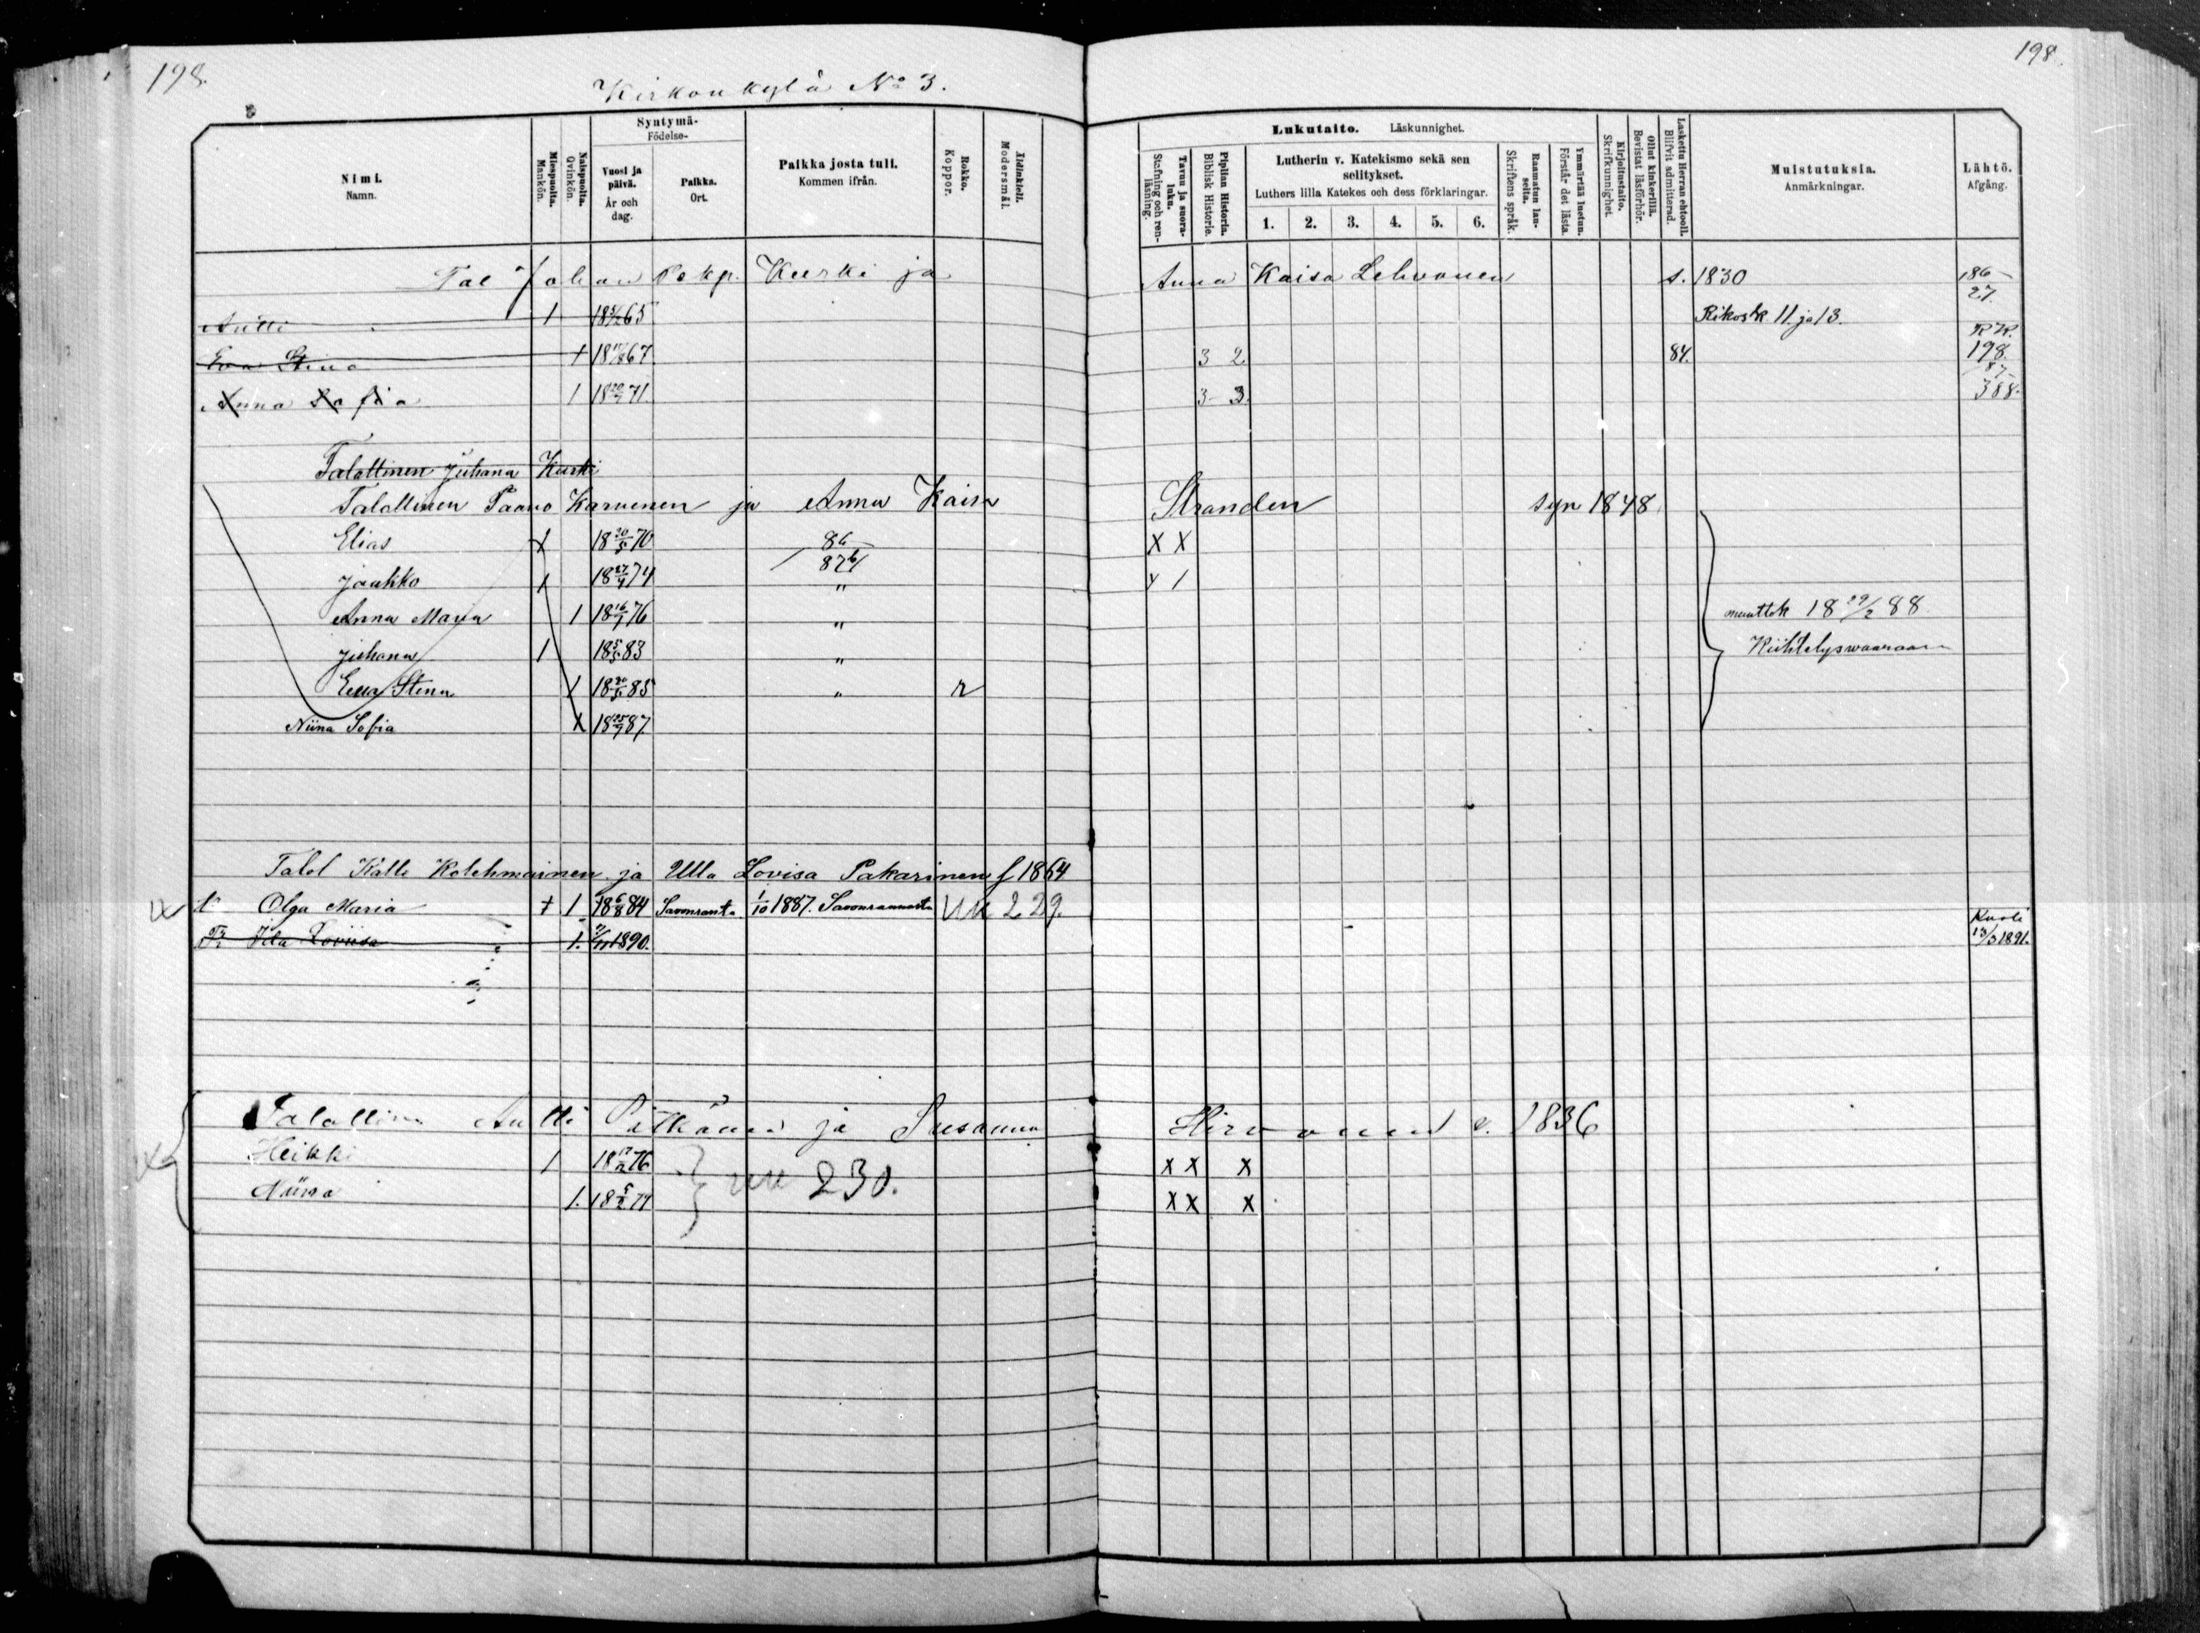 198.
Kirkonkylä No 3.
198.
Nimi.
Namn.
Miespuolia.
Mankön.
Naispuolia.
Qvinkön.
Syntymä-
Födelse-
Vuosi ja päivä.
År och dag.
Paikka.
Ort.
Paikka josta tuli.
Kommen ifrån.
Rokko.
Koppor.
Äidinkieli.
Modersmål.
Lukutaito. Läskunnighet.
Tavuu ja suora-luku.
Stafning och ren-läsning.
Piplian Historia.
Biblisk Historie.
Lutherin v. Katekismo sekä sen selitykset.
Luthers lilla Katekes och dess förklaringar.
1. 2. 3. 4. 5. 6.
Raamatun lau-seita.
Skriftens språk.
Ymmärtää luetun.
Förstår det lästa.
Kirjoitustaito.
Skrifkunnighet.
Ollut kinkerillä.
Bevistat läsförhör.
Laskettu Herran ehtooll.
Blifvit admitterad.
Muistutuksia.
Anmärkningar.
Lähtö.
Afgång.
Tal Johan Kurki ja Anna Kaisa Lehvonen s. 1830
Antti 1 65 Rikosk 11. ja 13.
Eva Stina 1 67 3 2. 84. 198.
Anna Sofia 1 18 71. 3 3. 388.
Talollinen Juhana Kurki
Talollinen Paavo Karvinen ja Anna Kaisa Stranden syn 1848
Elias 1 18 20/5 70 86 X X
Jaakko 1 18 27/4 74 " 1
Anna Maria 1 18 16/7 76 "
Juhana 1 18 5/5 83 "
Eeva Stina 1 18 85 " r
muuttok 18 29/2 88.
Kiihtelyswaaraan
Niina Sofia 18 87
Talol Kalle Kolehmainen ja Ulla Lovisa Pakarinen f 1864
Olga Maria 1 18 6/8 84 Savonranta 1/10 1887. Savonrannasta UK 229.
Tr Ida Loviisa 1. 1890. Kuoli 13/3 1891.
Talollinen Antti Pitkänen ja Susanna Hirvonen s. 1836
Heikki 1 18 76 X X X
UK 230.
Niina 1. 18 X X X